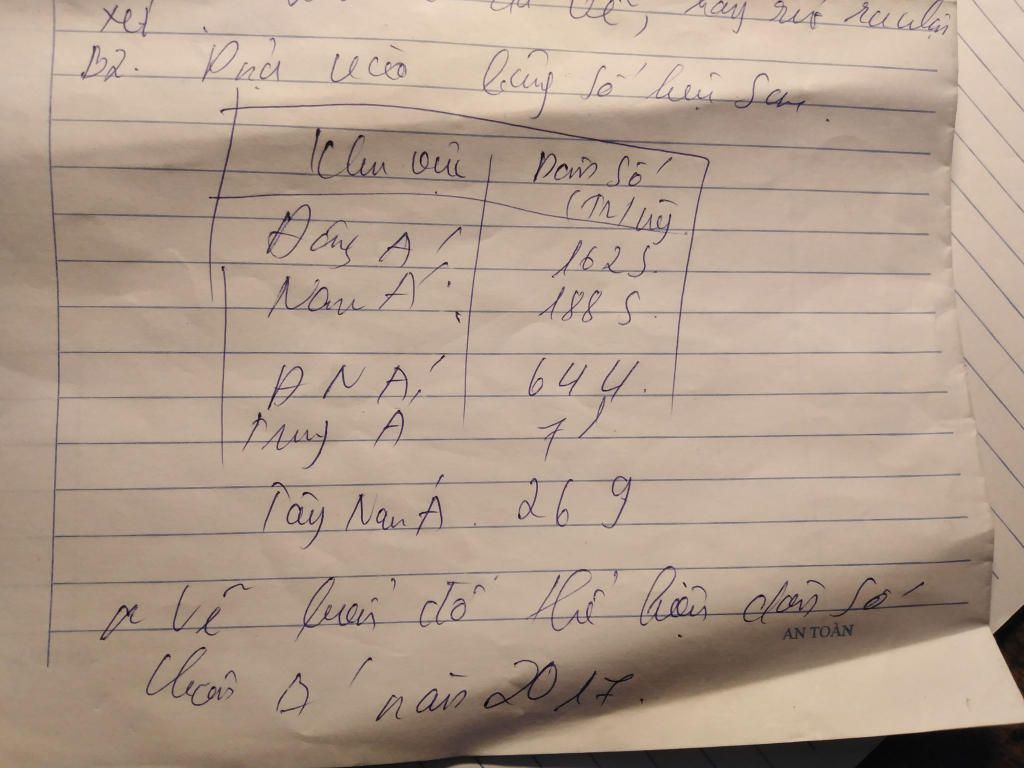 xét vẽ, hãy rút ra nhận
B2. Dựa vào bảng số liệu sau
Khu vực Dân số
(Tr/ng
Đông Á 1625.
Nam Á : 1885.
Đ N Á, 644.
Trung Á 71
Tây Nam Á. 269
a Vẽ biểu đồ thể hiện dân số
AN TOÀN
Châu Á năm 2017.